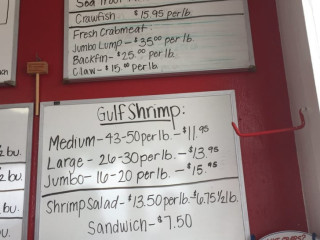 Crawfish $15.95 per lb
Fresh Crabmeat:
Jumbo Lump - $35.00 per lb
Backfin - $25.00 per lb.
Claw - $15.00 per lb
Gulf Shrimp:
Medium - 43-50 per lb. - $11.95
Large - 26-30 per lb. - $13.95
Jumbo - 16-20 per lb. - $15.95
Shrimp Salad - $13.50 per lb. - $6.75 ½ lb.
Sandwich - $7.50
½ bu.
½ bu.
bu.